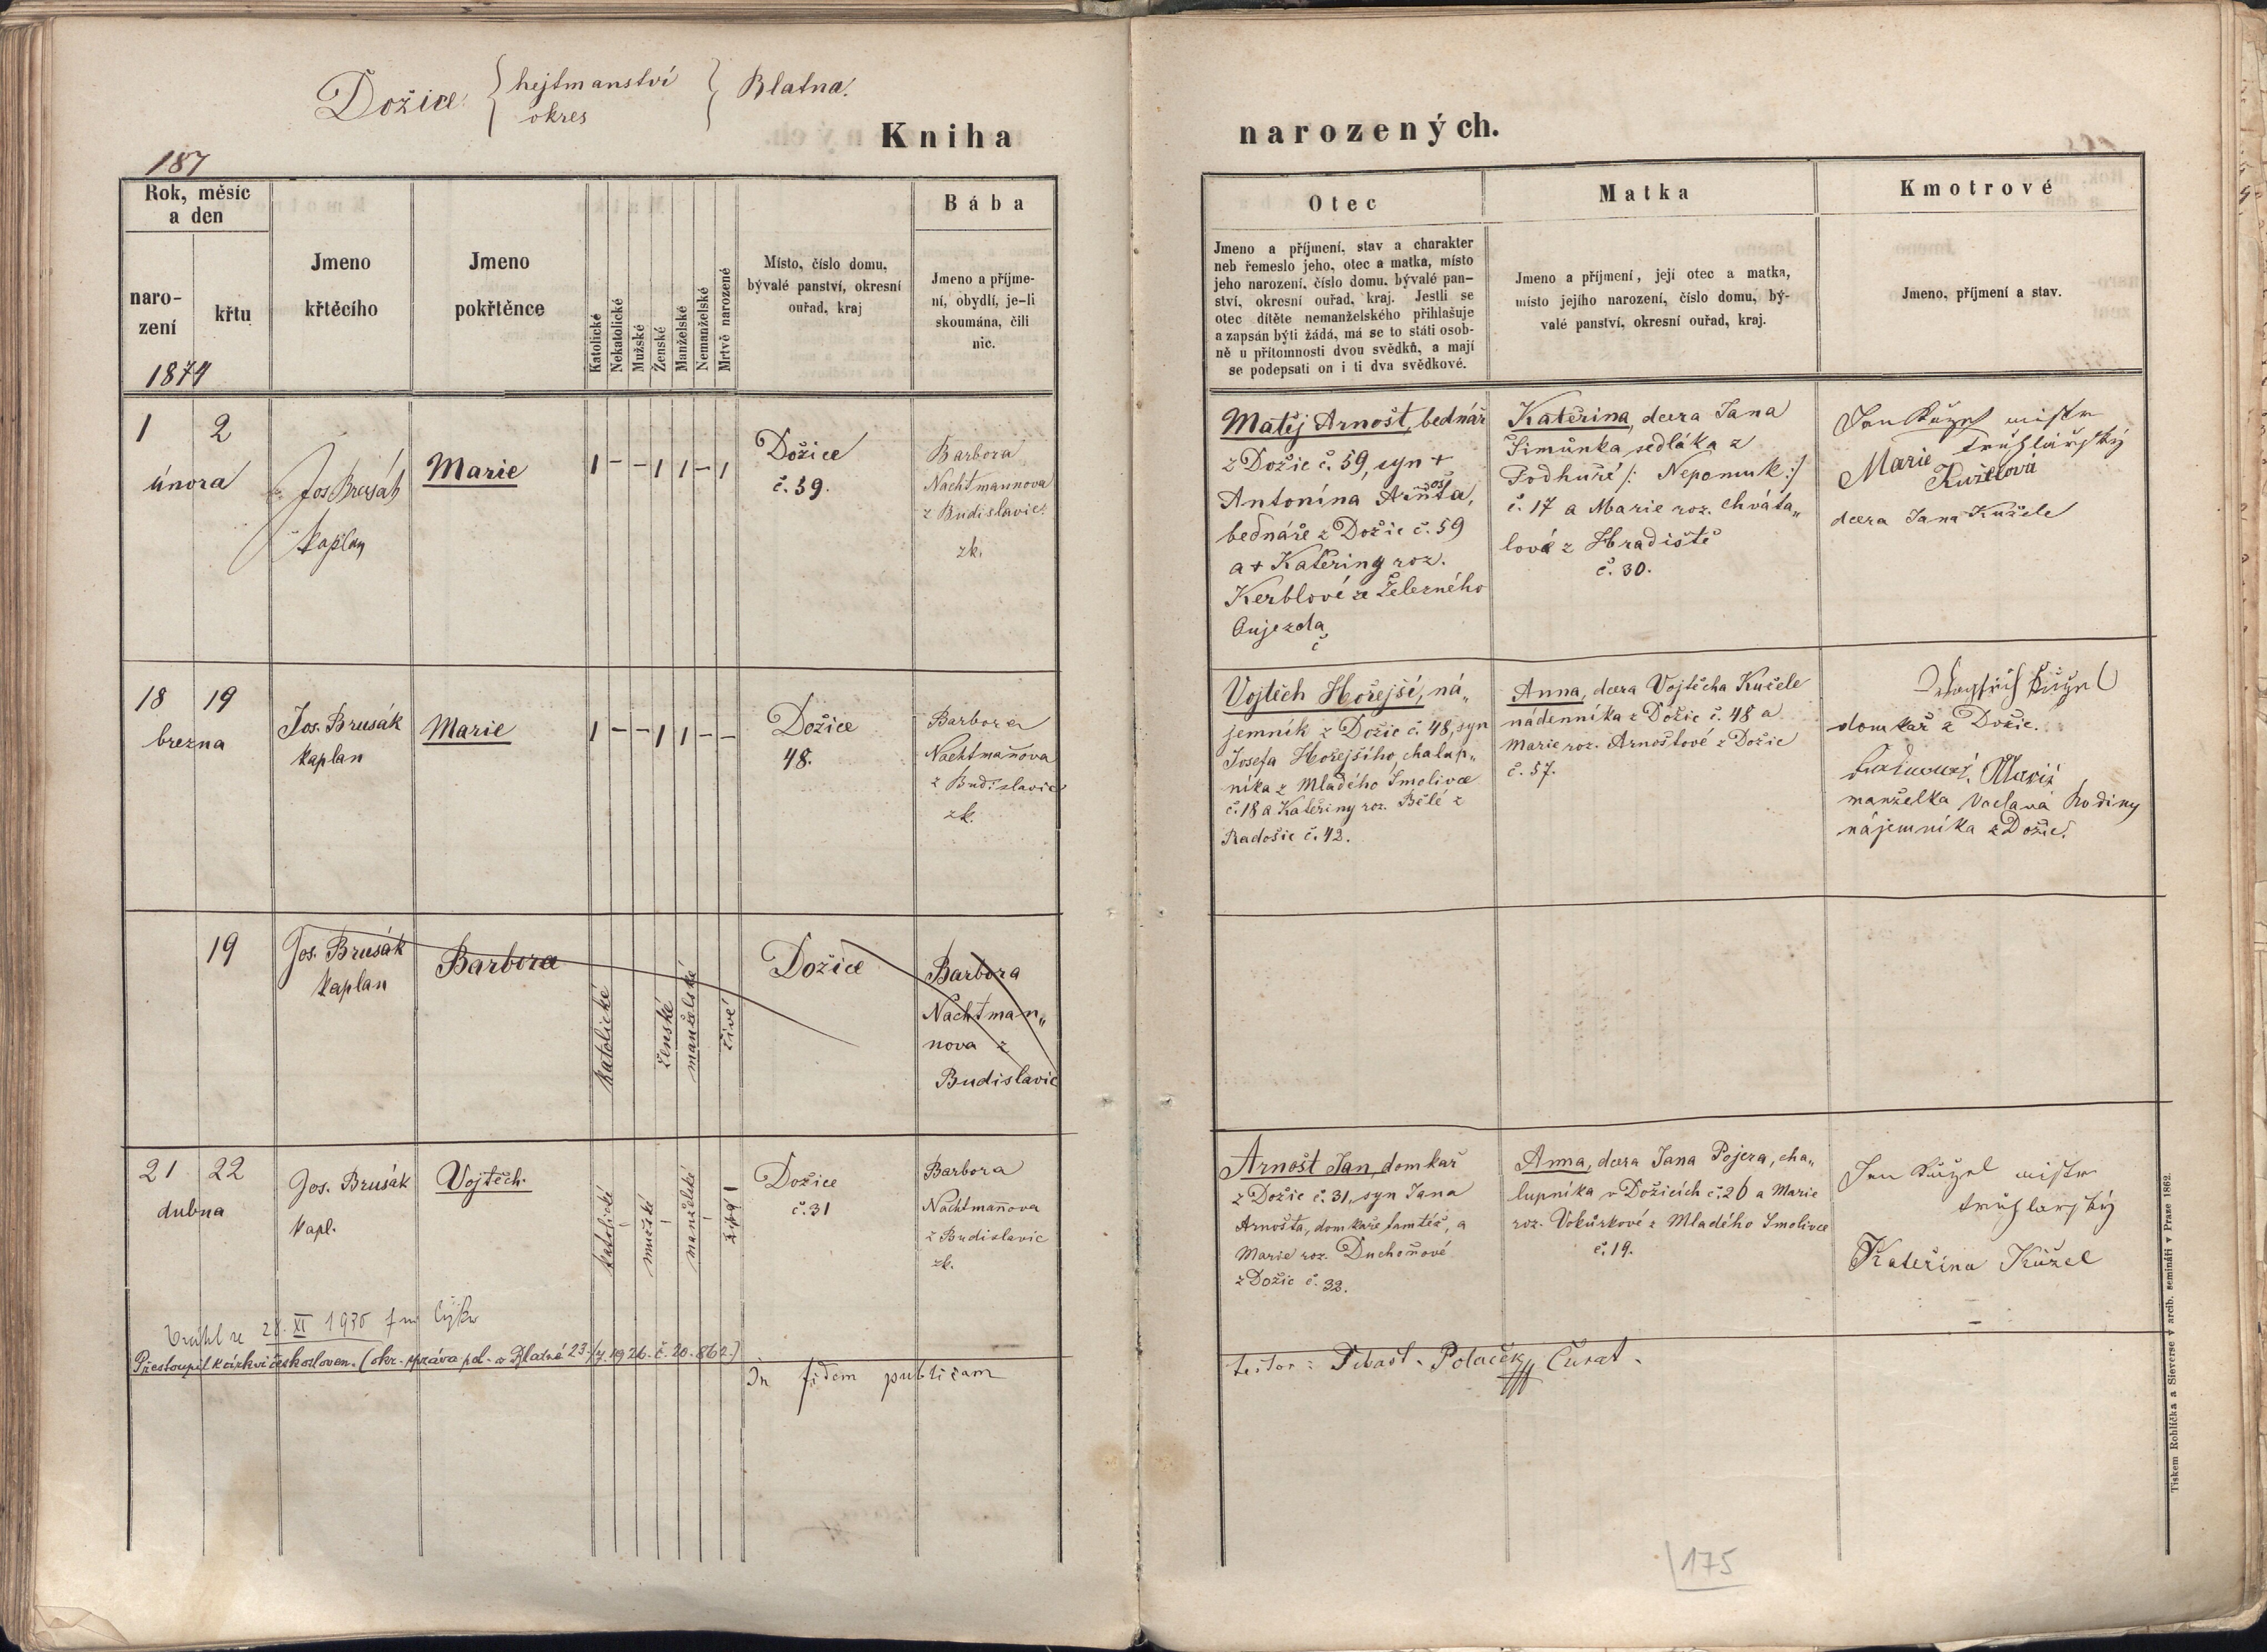 Dožice
hejtmanství
okres
Blatna.
Kniha
narozených.
187
Rok, měsíc
a den
naro-
zení
křtu
1874
Jmeno
křtěcího
Jmeno
pokřtěnce
Katolické
Nekatolické
Mužské
Ženské
Manželské
Nemanželské
Mrtvě narozené
Místo, číslo domu,
bývalé panství, okresní
ouřad, kraj
Bába
Jmeno a příjme-
ní, obydlí, je-li
skoumána, čili
nic.
Otec
Jmeno a příjmení, stav a charakter
neb řemeslo jeho, otec a matka, místo
jeho narození, číslo domu, bývalé pan-
ství, okresní ouřad, kraj. Jestli se
otec dítěte nemanželského přihlašuje
a zapsán býti žádá, má se to státi osob-
ně u přítomnosti dvou svědků, a mají
se podepsati on i ti dva svědkové.
Matka
Jmeno a příjmení, její otec a matka,
místo jejího narození, číslo domu, bý-
valé panství, okresní ouřad, kraj.
Kmotrové
Jmeno, příjmení a stav.
1 2
února
Jos Brusák
kaplan
Marie
1 – – 1 1 – 1
Dožice
č. 59.
Barbora
Nachtmannova
z Budislavic
zk.
Matěj Arnošt, bednář
z Dožic č. 59, syn +
Antonína Arnošta,
bednáře z Dožic č. 59
a + Kateřiny roz.
Kerblové ze Železného
Oujezda
č
Kateřina, dcera Jana
Šimůnka, sedláka z
Podhuří /: Nepomuk :/
č. 17 a Marie roz. Chváta„
lové z Hradiště
č. 30.
Jan Kužel mistr
truhlářský
Marie
Kuželová
dcera Jana Kužele
18 19
března
Jos. Brusák
kaplan
Marie
1 – – 1 1 – –
Dožice
48.
Barbora
Nachtmañova
z Budislavic
zk.
Vojtěch Hořejší, ná„
jemník z Dožic č. 48, syn
Josefa Hořejšího, chalup„
níka z Mladého Smolivce
č. 18 a Kateřiny roz. Bělé z
Radošic č. 42.
Anna, dcera Vojtěcha Kužele
nádenníka z Dožic č. 48 a
Marie roz. Arnoštové z Dožic
č. 57.
domkař z Dožic.
manželka Vaclava Rodiny
nájemníka z Dožic.
19
Jos. Brusák
kaplan
Barbora
katolické
ženské
manželské
živé
Dožice
Barbora
Nachtman„
nova z
Budislavic
21 22
dubna
Jos. Brusák
kapl.
Vojtěch.
katolické
mužské
manželské
živé
Dožice
č. 31
Barbora
Nachtmañova
z Budislavic
zk.
Arnošt Jan, domkař
z Dožic č. 31, syn Jana
Arnošta, domkaře tamtéž, a
Marie roz. Duchoňové
z Dožic č. 32.
Anna, dcera Jana Pojera, cha„
lupníka v Dožicích č. 26 a Marie
roz. Vokůrkové z Mladého Smolivce
č. 19.
Jan Kužel mistr
truhlarský
Kateřina Kůžel
28. XI 1930
Přestoupil k církvi českosloven. (okr. správa pol. v Blatné 23./7. 1926. č. 20.862.)
In fidem publicam
testor: Šebast. Polaček Curat.
175
Tiskem Rohlíčka a Sieverse v arcib. semináři v Praze 1862.